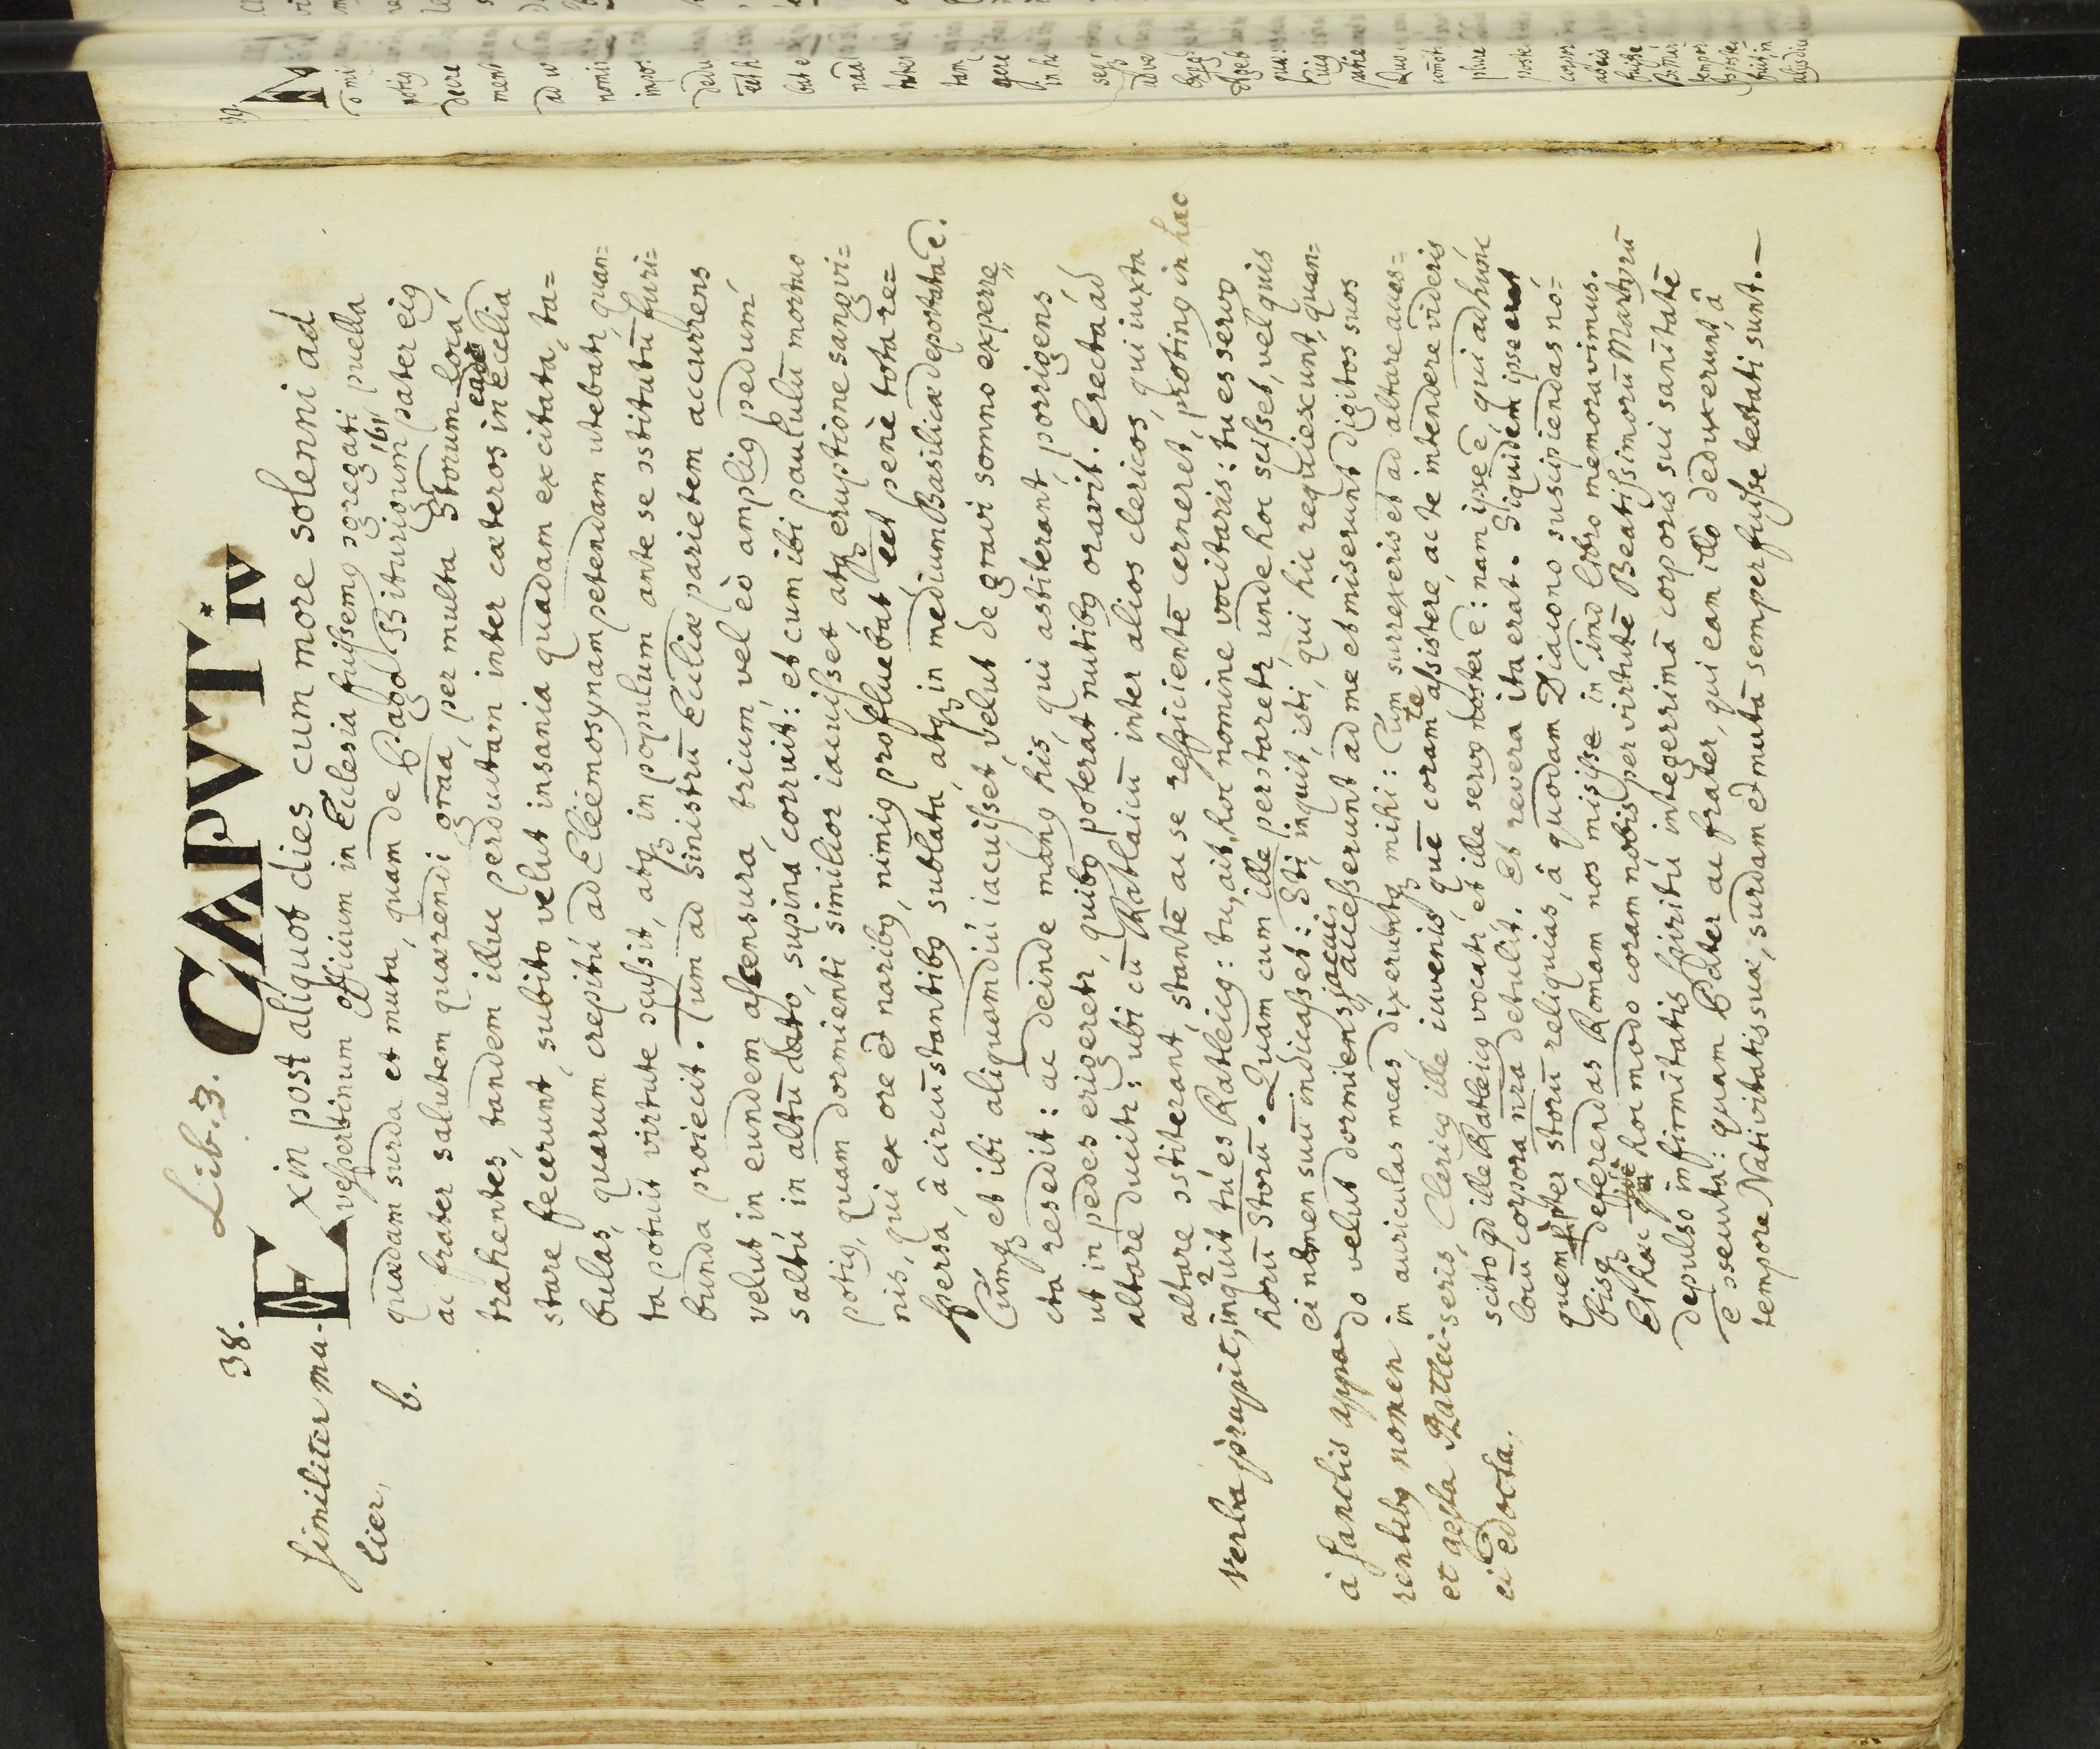 38. Lib. 3. CAPVT iv
Exin post aliquot dies cum more solenni ad
vespertinum officium in Ecclesia fuissemꝰ ↄgregati puella
quædam surda et muta, quam de Pago Biturigoum ibi pater eiꝰ
ac frater salutem quærendi grãa, per multa Storum loca,
trahentes, tandem illuc perductam inter cæteros in eadẽ Ecclia
stare fecerunt, subito velut insania quadam excitata, ta=
bulas, quarum crepitú ad Eleëmosynam petendam utebatr, quan=
ta potuit virtute ↄcussit, atq; in populum ante se ↄstitutũ furi=
bunda proiecit. Tum ad sinistrũ Ecclìæ parietem accurrens
velut in eundem ascensura, trium, vel eò ampliꝰ pedum
saltú in altũ dato, supina corruit: et cum ibi paululũ mortuo
potiꝰ, quam dormienti similior iacuisset, atq; eruptione sangvi=
nis, qui ex ore et naribꝰ, nimiꝰ profluebat, ect penè tota re=
spersa, à circũstantibꝰ sublata, atq; in medium Basilicæ deportata ẽ.
Cumq; et ibi aliquamdiú iacuisset, velut de gravi somno experre„
cta resedit: ac deinde manꝰ his, qui astiterant, porrigens
ut in pedes erigeretr, quibꝰ poterat nutibꝰ oravit. Erecta ad
altare ducitr: ubi cũ Rathlaicũ inter alios clericos, qui iuxta
altare ↄstiterant, stantẽ ac se respicientẽ cerneret, protinꝰ in hac
verba prupit, inquit tú es Ratleicꝰ: tu, ait, hoc nomine vocitaris: tu es servꝰ
horũ Storũ. Quam cum ille perↄtaretr, unde hoc scisset, vel quis
ei nomen suũ indicasset: Sti, inquit, isti, qui hic requiescunt, quan=
do velut dormiens jacui, accesserunt ad me et miserunt digitos suos
in auriculas meas, dixeruntq; mihi: Cum surrexeris et ad altare acces=
seris, Clericꝰ ille iuvenis, quẽ coram te assistere, ac te intendere videris
scito qd ille Ratleicꝰ vocatr et ille servꝰ noster ẽ: nam ipse ẽ, qui ad hunc
locũ corpora nrã detulit. Et revera ita erat. Siquidem ipse erat
quem ꝑpter Storũ reliquias, à quodam Diacono suscipiendas no=
bisq; deferendas Romam nos misisse in imo libro memoravimus.
Et hæc hoc modo coram nobis per virtutẽ Beatissimorũ Martyrũ
depulso infirmitatis spiritú integerrimã corporis sui sanitatẽ
ẽ ↄsecuta: quam Pater ac frater, qui eam illo deduxerunt, â
tempore Nativitatis suæ, surdam et mutã semper fuisse testati sunt.—
similiter mu-
lier,
b.
à sanctis appa
rentibꝰ nomen
et gesta Ratlei-
ci edocta.
39.